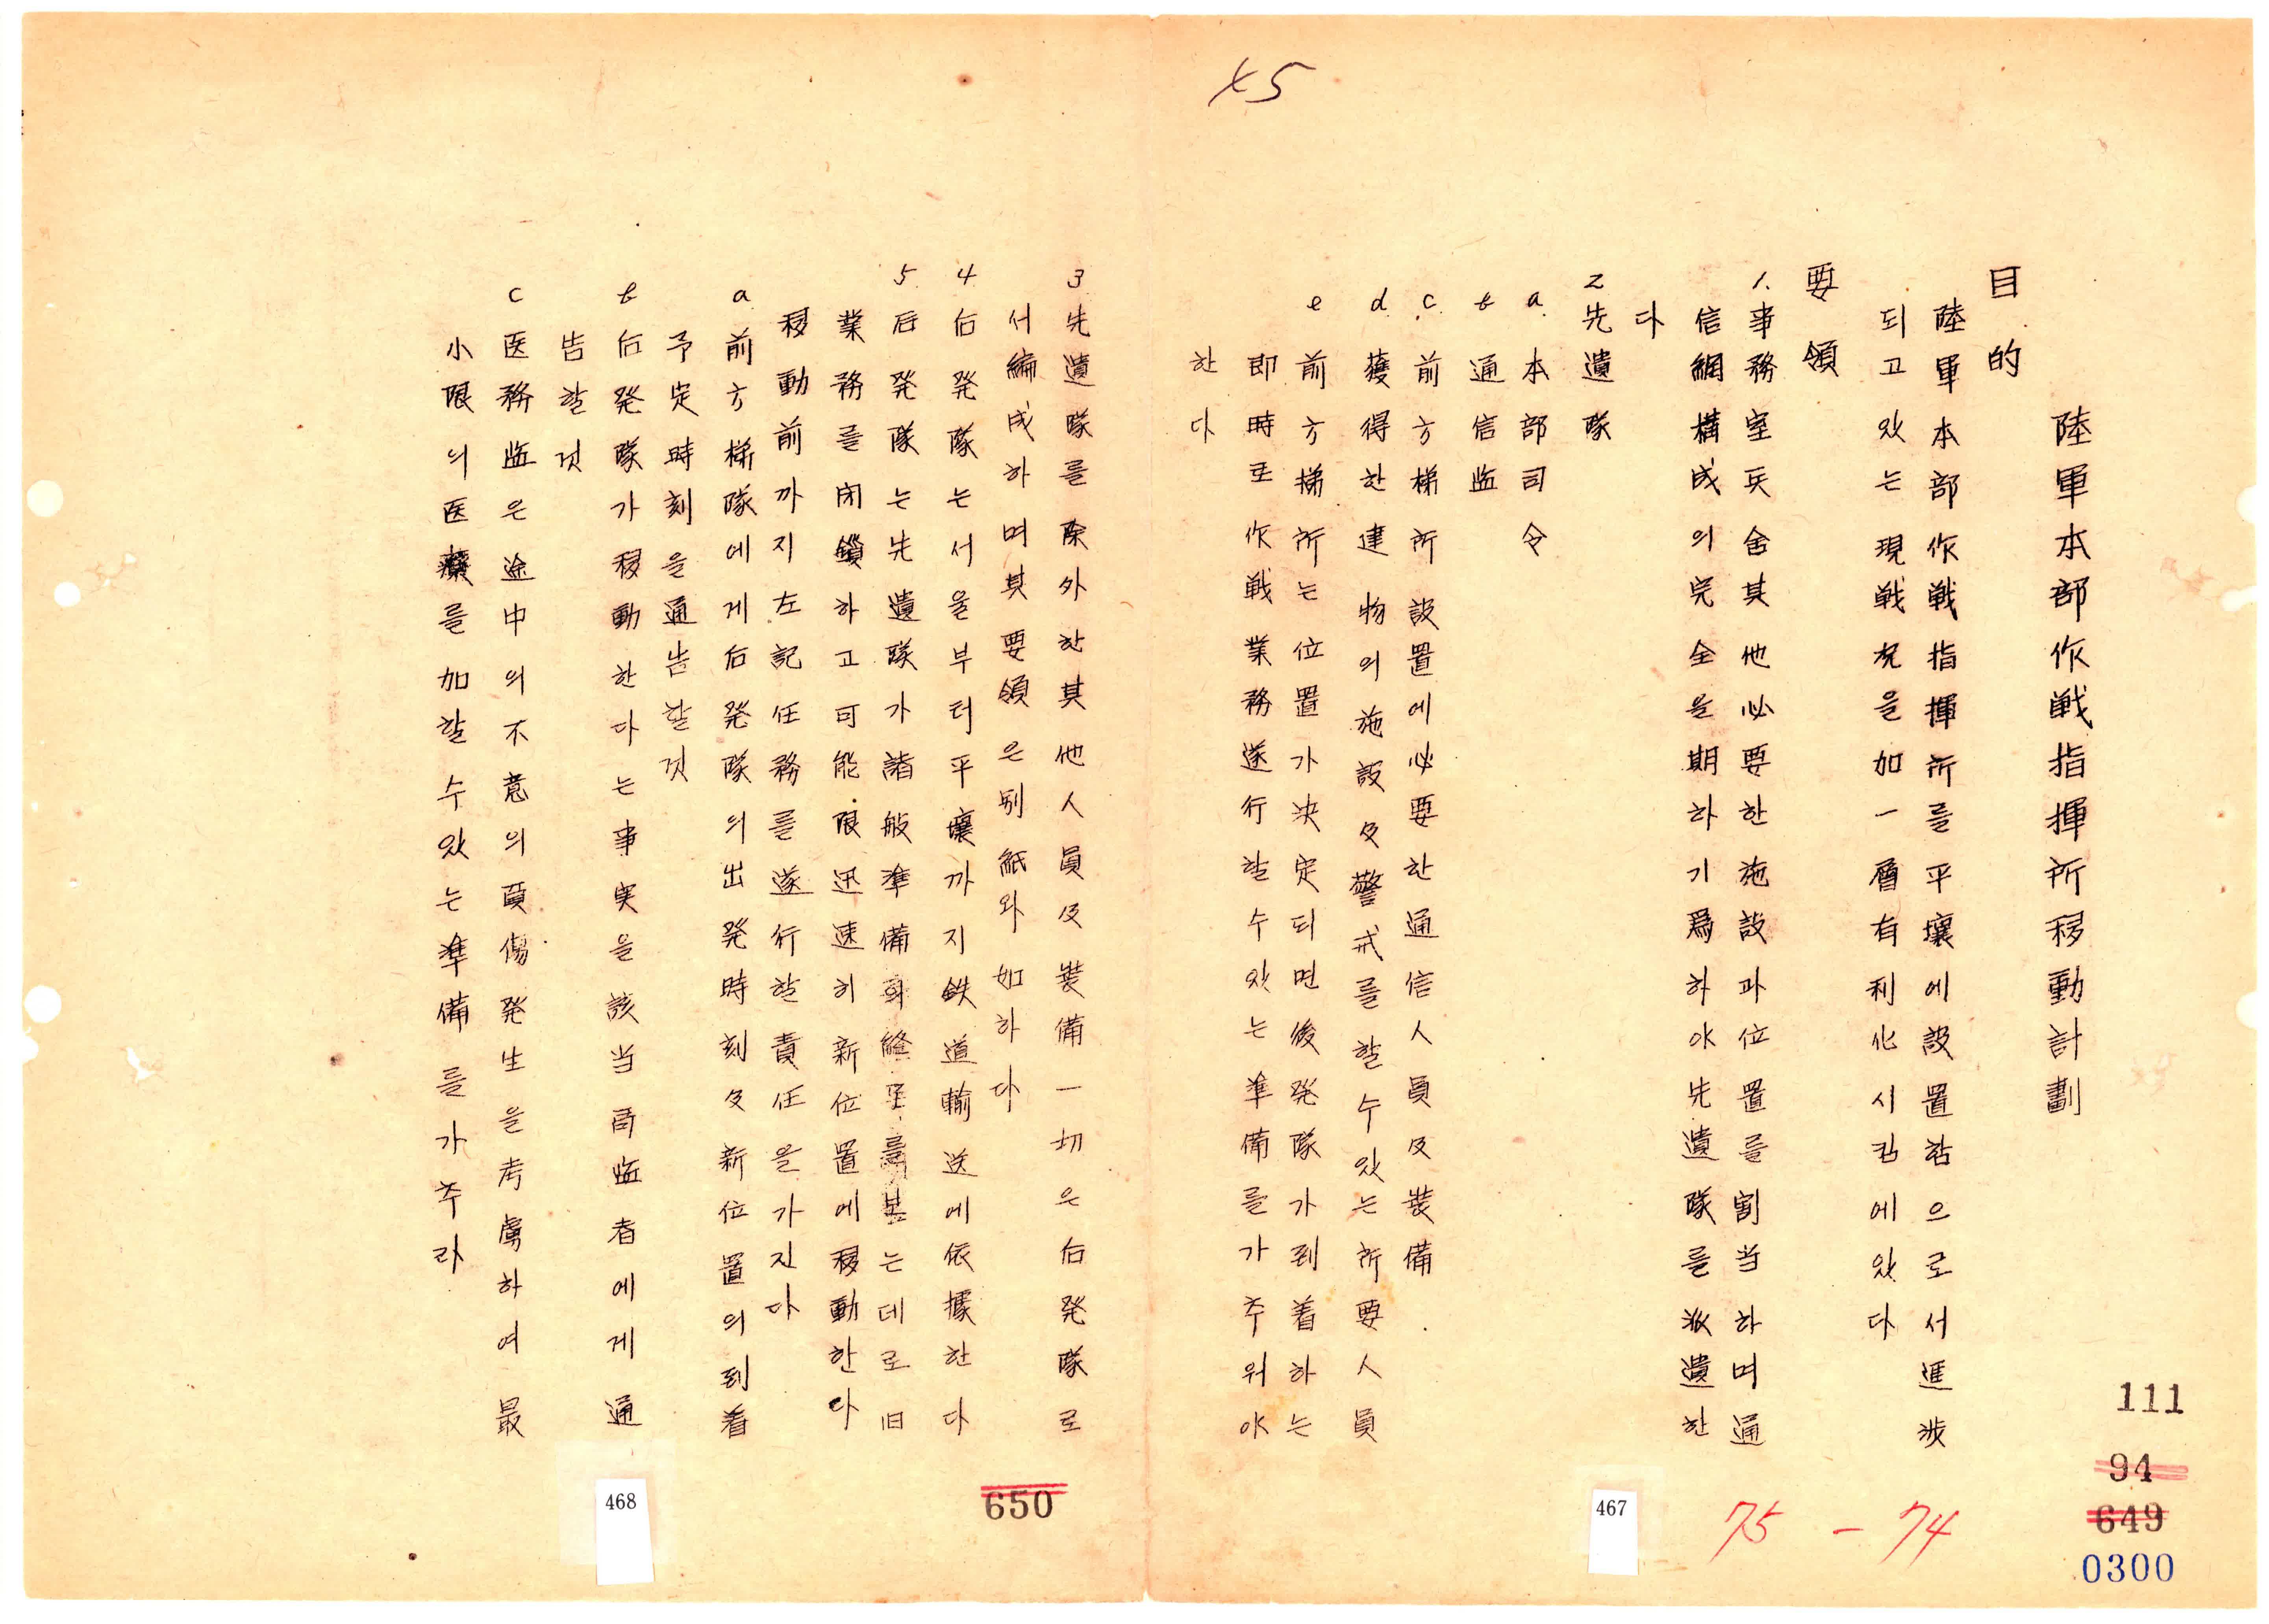 45
陸軍本部作戦指揮所移動計劃
目的
陸軍本部作戦指揮所를平壤에設置함으로서進涉
되고있는現戦況을加一層有利化시킴에있다
要領
1.事務室兵舍其他必要한施設과位置를割当하며通
信網構成의完全을期하기爲하야先遣隊를派遣한
다
2先遣隊
a.本部司令
b通信監
c.前方梯所設置에必要한通信人員及装備.
d.獲得한建物의施設及警戒를할수있는所要人員
e前方梯所는位置가决定되면後発隊가到着하는
即時로作戦業務遂行할수있는準備를가추워야
한다
111
94
649
0300
75-74
467
3先遣隊를除外한其他人員及装備一切은后発隊로
서編成하며其要領은別紙와如하다
4.后発隊는서울부터平壤까지鉄道輸送에依據한다
5.后発隊는先遣隊가諸般準備 는데로旧
業務를閉鎖하고可能限迅速히新位置에移動한다
移動前까지左記任務를遂行할責任을가진다
a前方梯隊에게后発隊의出発時刻及新位置의到着
予定時刻을通告할것
b后発隊가移動한다는事実을該当局監者에게通
告할것
c医務監은途中의不意의負傷発生을考慮하여最
小限의医療를加할수있는準備를가추라
650
468